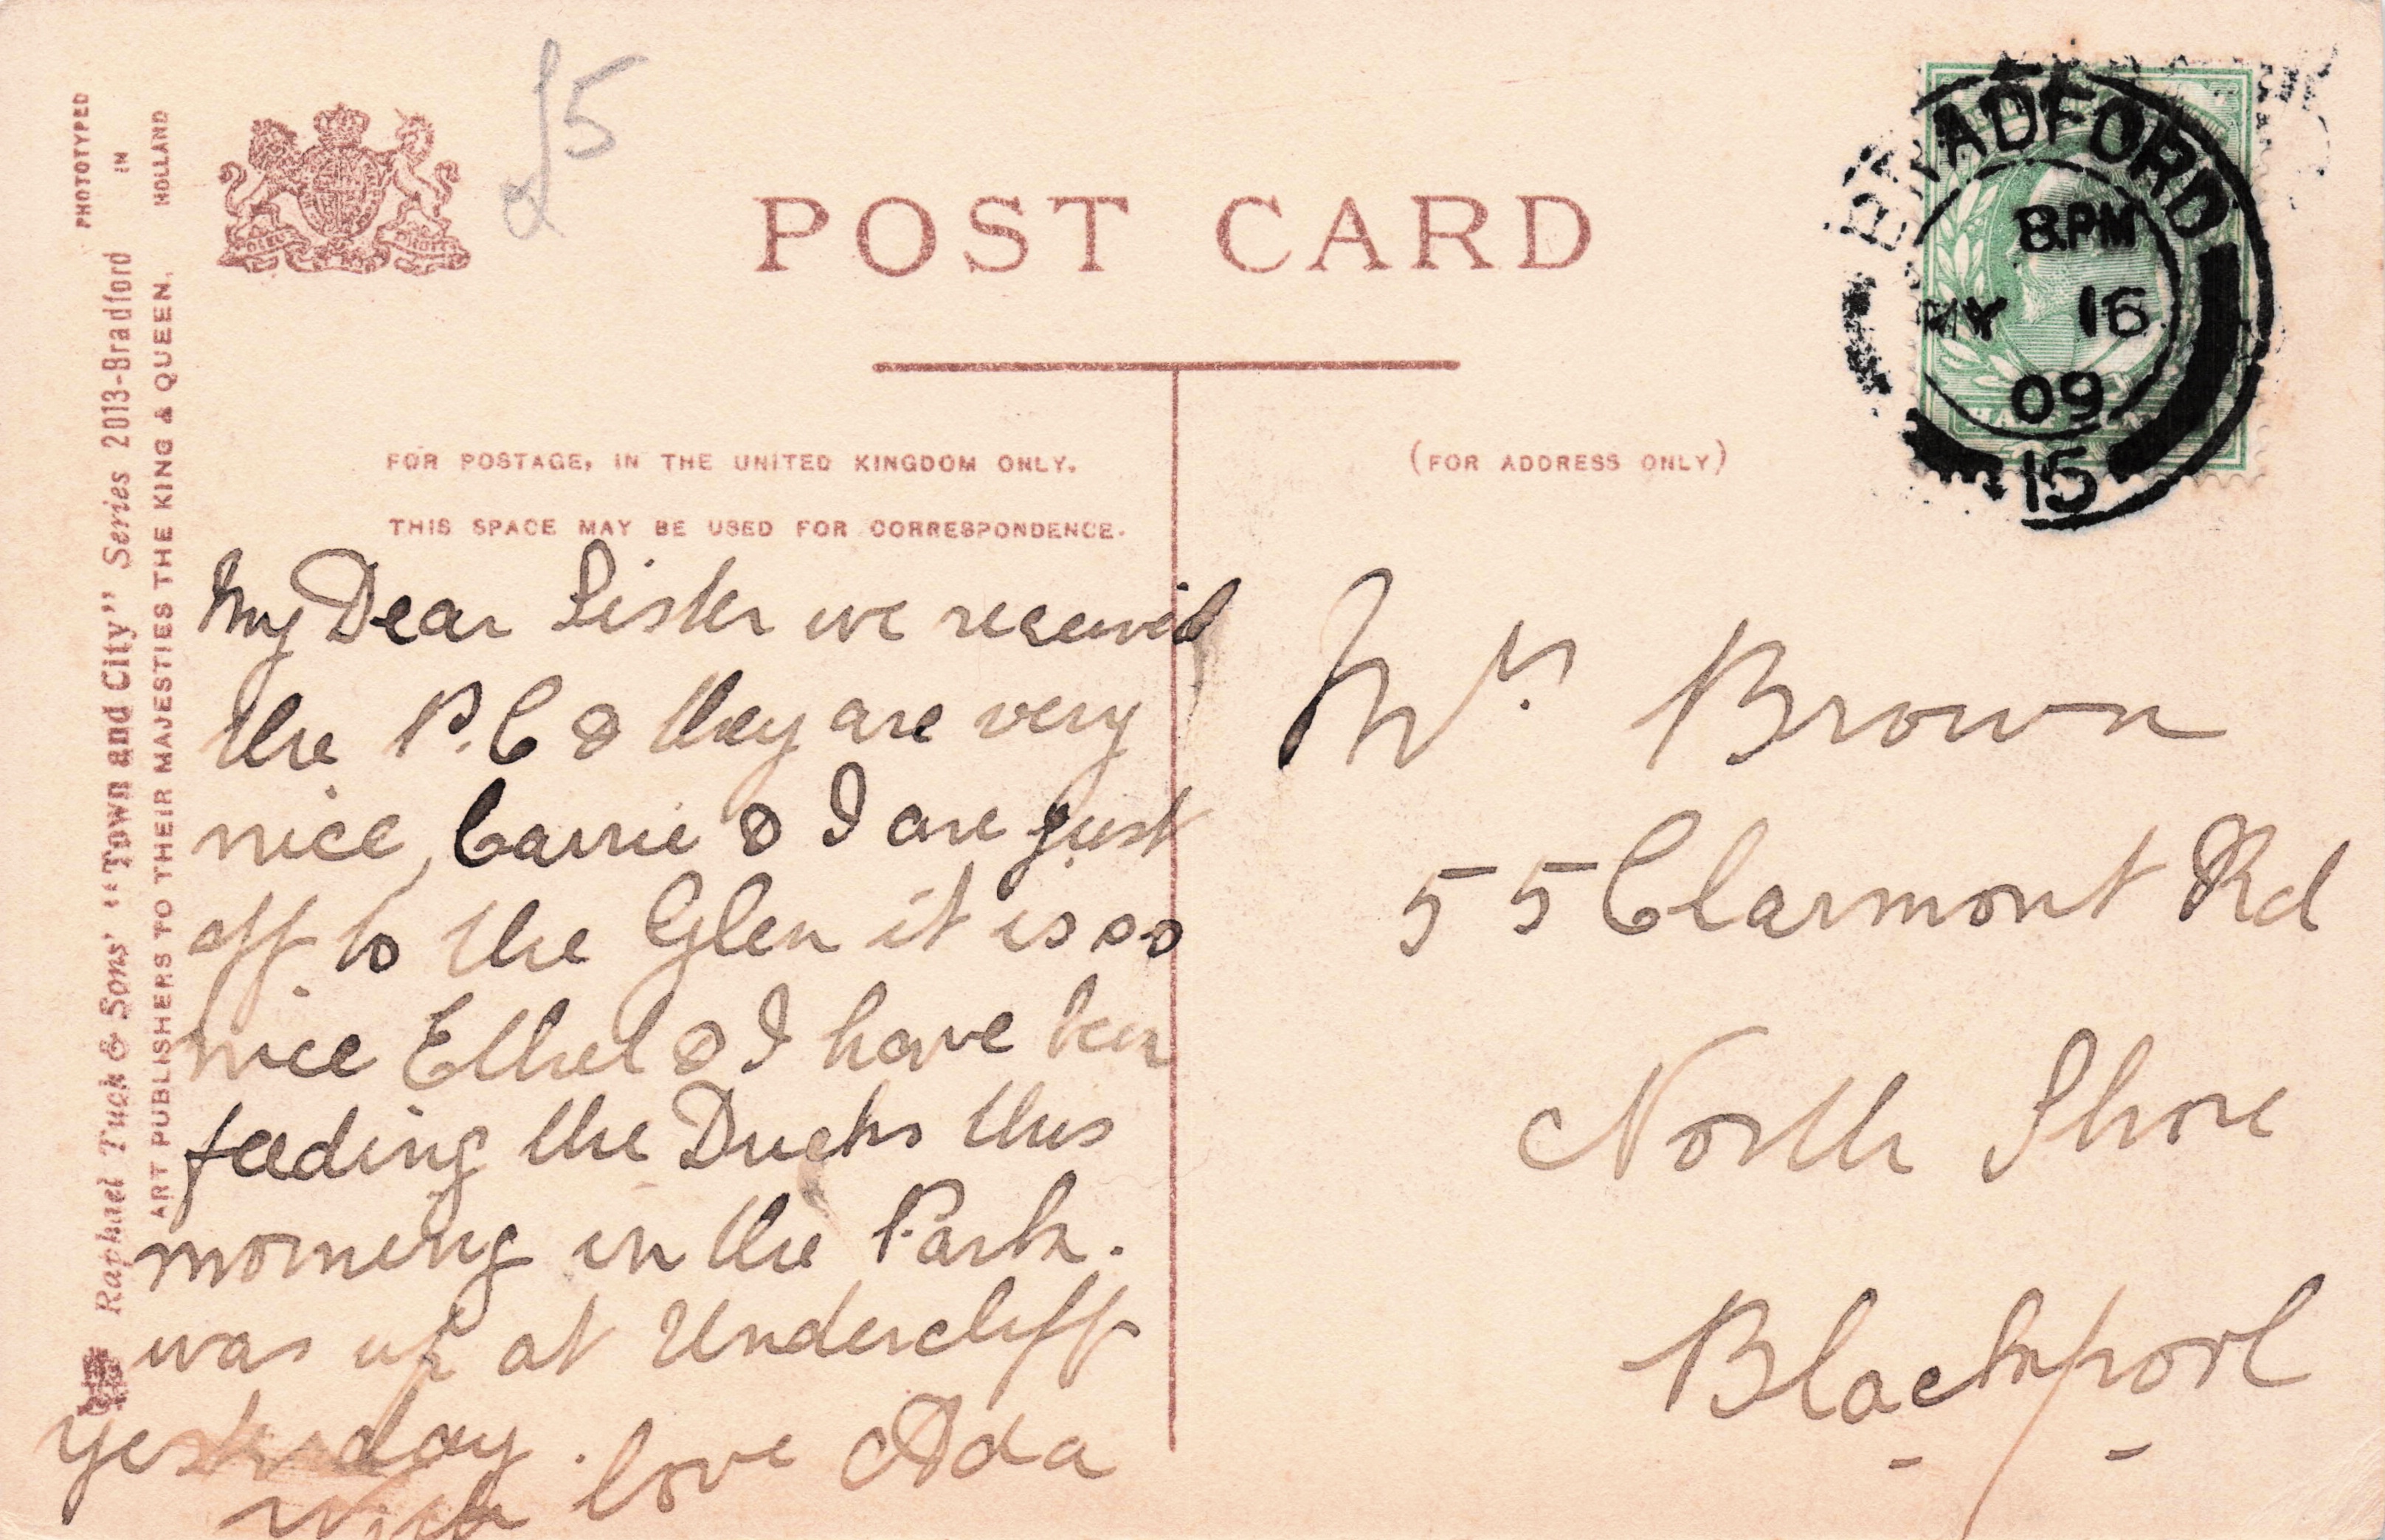 £5
POST CARD
FOR POSTAGE, IN THE UNITED KINGDOM ONLY.
THIS SPACE MAY BE USED FOR CORRESPONDENCE.
(FOR ADDRESS ONLY)
BRADFORD
8.PM
MY 16
09
15
PHOTOTYPED IN HOLLAND
Raphael Tuck & Sons' "Town and City" Series 2013-Bradford
ART PUBLISHERS TO THEIR MAJESTIES THE KING & QUEEN.
My Dear Sister we received
the P.C & they are very
nice, Carrie & I are just
off to the Glen it is so
nice Ethel & I have been
feeding the Ducks this
morning in the Park.
was up at Undercliff
yesterday.
With love Ada
Mrs. Brown
55 Clarmont Rd
North Shore
Blackpool